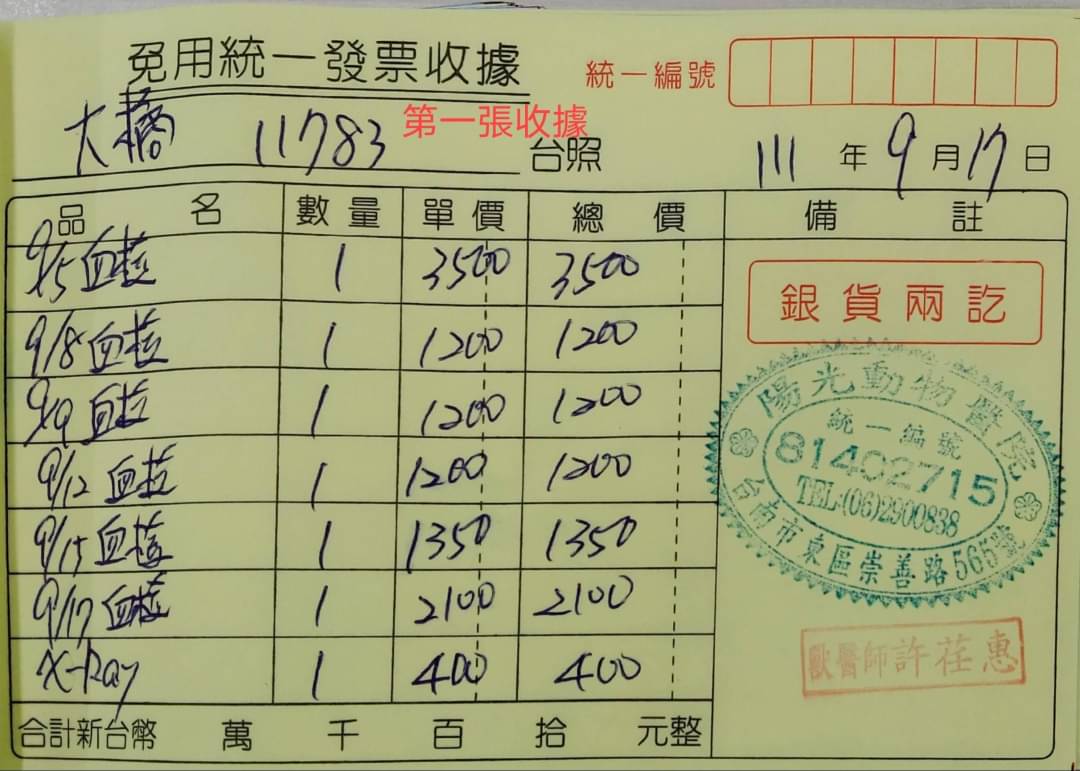 免用統一發票收據
統一編號
大橋 11783
第一張收據
台照
111年9月17日
品名 數量 單價 總價 備註
9/5 血檢 1 3500 3500
9/8 血檢 1 1200 1200
9/9 血檢 1 1200 1200
9/12 血檢 1 1200 1200
9/15 血檢 1 1350 1350
9/17 血檢 1 2100 2100
X-Ray 1 400 400
合計新台幣 萬 千 百 拾 元整
銀貨兩訖
陽光動物醫院
統一編號
81402715
TEL:(06)2900838
台南市東區崇善路565號
獸醫師許荏惠